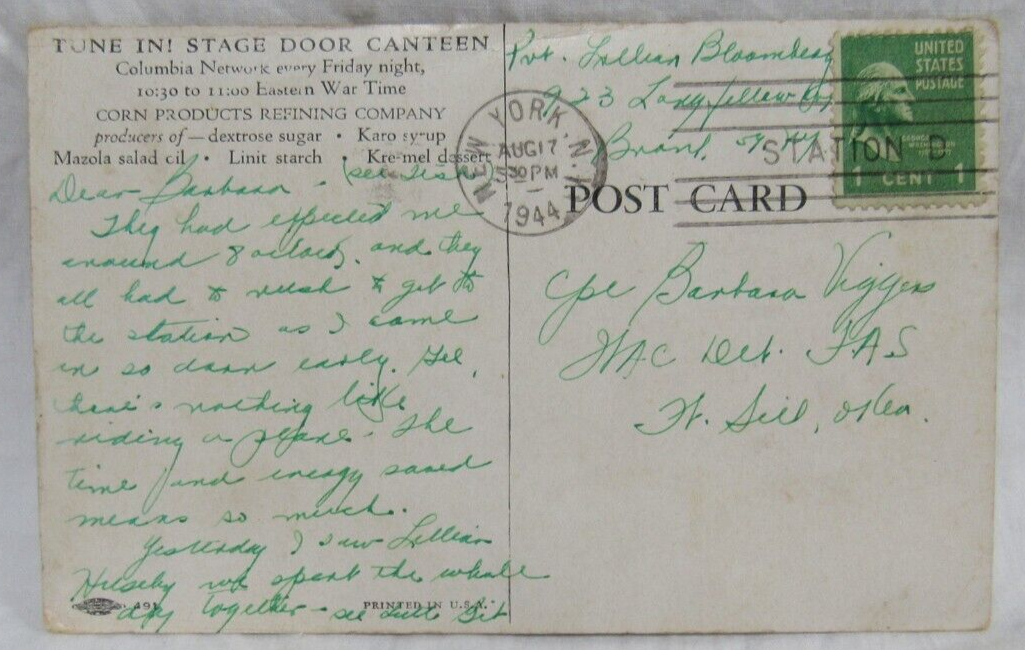 TUNE IN! STAGE DOOR CANTEEN
Columbia Network every Friday night,
10:30 to 11:00 Eastern War Time
CORN PRODUCTS REFINING COMPANY
producers of — dextrose sugar • Karo syrup
Mazola salad oil • Linit starch • Kre-mel dessert
Dear Barbara -
They had expected me
around 8 oclock, and they
all had to rush to get to
the station as I came
in so darn early. Gee,
there's nothing like
riding a plane. The
time and energy saved
means so much.
Yesterday I saw Lillian
we spent the whole
day together - see
491
PRINTED IN U.S.A.
Pvt. Lillian Bloomberg
923 Longfellow
Bronx, 59 NY
NEW YORK, N.Y.
AUG 17
5 30 PM
1944
STATION D
UNITED
STATES
POSTAGE
1 CENT 1
POST CARD
Cpl Barbara Viggers
WAC Det. F.A.S
Ft. Sill, Okla.